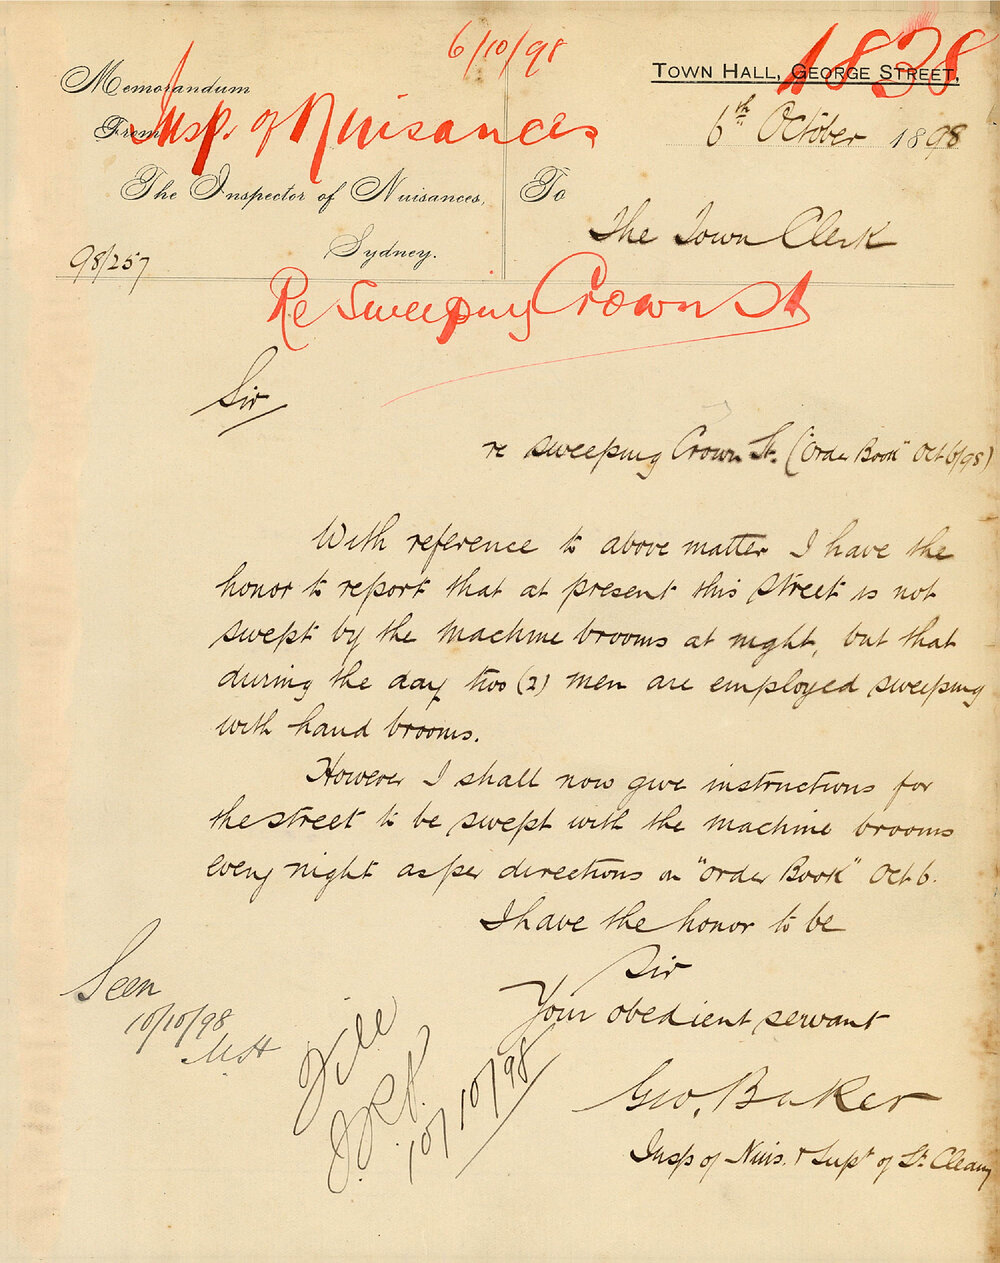 6/10/98
1838
Town Hall, George Street,
Memorandum
From
Insp. of Nuisances
6th October 1898
The Inspector of Nuisances,
To
Sydney.
The Town Clerk
98/257
Re Sweeping Crown St
Sir
re sweeping Crown St. ("Order Book" Oct 6/98)
With reference to above matter I have the
honor to report that at present this street is not
swept by the machine brooms at night, but that
during the day two (2) men are employed sweeping
with hand brooms.
However I shall now give instructions for
the street to be swept with the machine brooms
every night as per directions in "Order Book" Oct 6.
I have the honor to be
Sir
Your obedient servant
Geo. Baker
Insp of Nuis. & Supt of St. Cleang
Seen
10/10/98
File
10/10/98